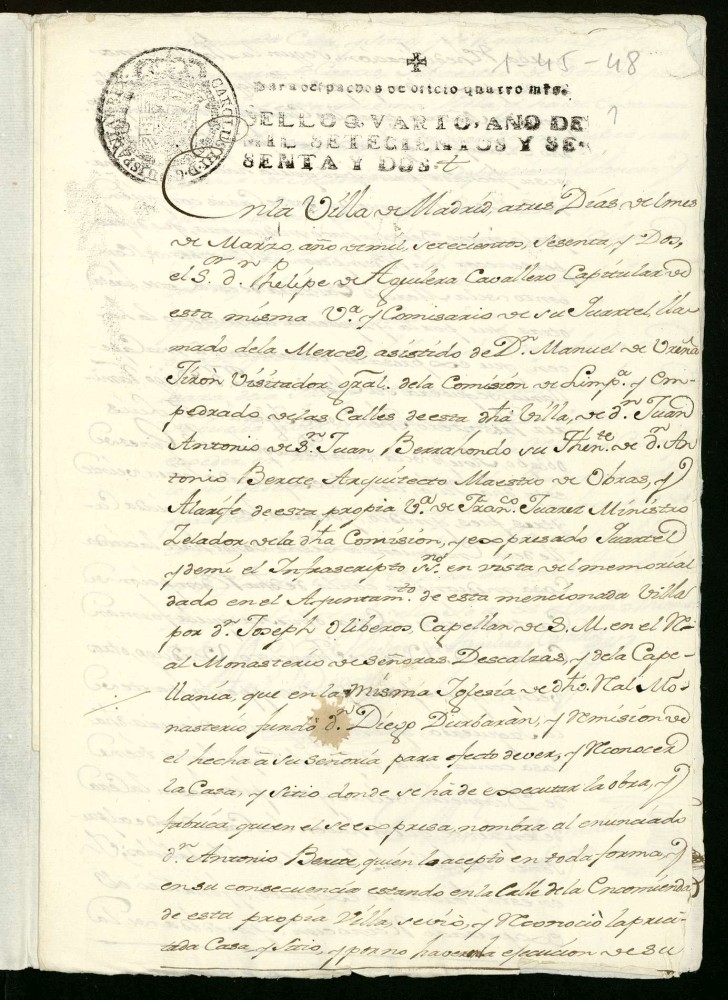 1-45-48
1
Para despachos de oficio quatro mrs.
SELLO QVARTO, AÑO DE
MIL SETECIENTOS Y SE-
SENTA Y DOS.
CAROLUS III D G
HISPANIAR REX
En la Villa de Madrid, a tres Dias del mes
de Marzo, año de mil, setecientos, sesenta, y Dos,
el S.or d.n Phelipe de Aguilera Cavallero Capitular de
esta misma V.a y Comisario de su Quartel, lla
mado de la Merced, asistido de D.n Manuel de Ureña
Tiròn Visitador gral. de la Comisión de Limp.a y Em-
pedrado de las Calles de esta dhã Villa, de d.n Juan
Antonio de S.n Juan Berrahondo su Then.te de d.n An-
tonio Berete Arquitecto Maestro de Obras, y
Alarife de esta propia V.a de Fran.co Juarez Ministro
Zelador de la dhã Comisión, y expresado Quartel
y de mi el Infrascripto SS.no en vista del memorial
dado en el Ayuntam.to de esta mencionada Villa
por d.n Joseph Oliberos, Capellan de S. M. en el Rè-
al Monasterio de Señoras Descalzas, y de la Cape-
llania, que en la misma Iglesia de dhõ Real Mo-
nasterio fundò d.n Diego Durbaràn, y Remision de
el hecha à su Señoria para efecto de ver, y Reconocer
la Casa, y Sitio donde se hà de executar la obra, y
fabrica, que en el se expresa, nombra al enunciado
d.n Antonio Berete, quien lo acepto en toda forma, y
en su consecuencia estando en la Calle de la Encomienda
de esta propia Villa, se viò, y Reconociò la preci-
tada Casa, y Sitio, y por no haver en la ejecucion de su